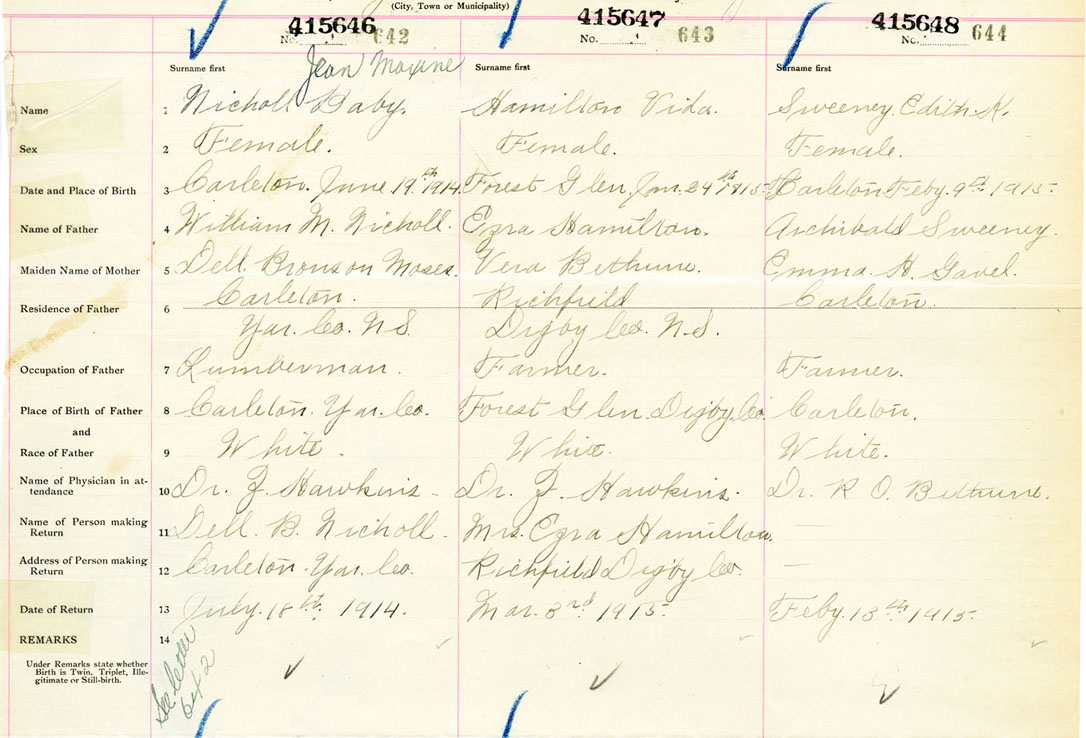 (City, Town or Municipality)
415646 415647 415648
No. 642 No. 643 No. 644
Jean Maxine
Surname first Surname first Surname first
Name 1 Nicholl Baby. Hamilton Vida. Sweeney Edith A.
Sex 2 Female. Female. Female.
Date and Place of Birth 3 Carleton. June 19th 1914. Forest Glen, Jan. 24th 1915. Carleton Feby. 9th 1915.
Name of Father 4 William M. Nicholl. Ezra Hamilton. Archibald Sweeney.
Maiden Name of Mother 5 Dell Bronson Moses. Vera Bethune. Emma H. Gavel.
Residence of Father 6 Carleton. Richfield Carleton.
Yar. Co. N.S. Digby Co. N.S.
Occupation of Father 7 Lumberman. Farmer. Farmer.
Place of Birth of Father 8 Carleton. Yar. Co. Forest Glen Digby Co. Carleton.
and
Race of Father 9 White. White. White.
Name of Physician in at-
tendance 10 Dr. Z. Hawkins. Dr. Z. Hawkins. Dr. R O. Bethune.
Name of Person making
Return 11 Dell. B. Nicholl. Mrs. Ezra Hamilton.
Address of Person making
Return 12 Carleton. Yar. Co. Richfield Digby Co.
Date of Return 13 July. 18th 1914. Mar. 3rd 1915. Feby. 13th 1915.
REMARKS 14
Under Remarks state whether
Birth is Twin, Triplet, Ille-
gitimate or Still-birth.
See letter
642